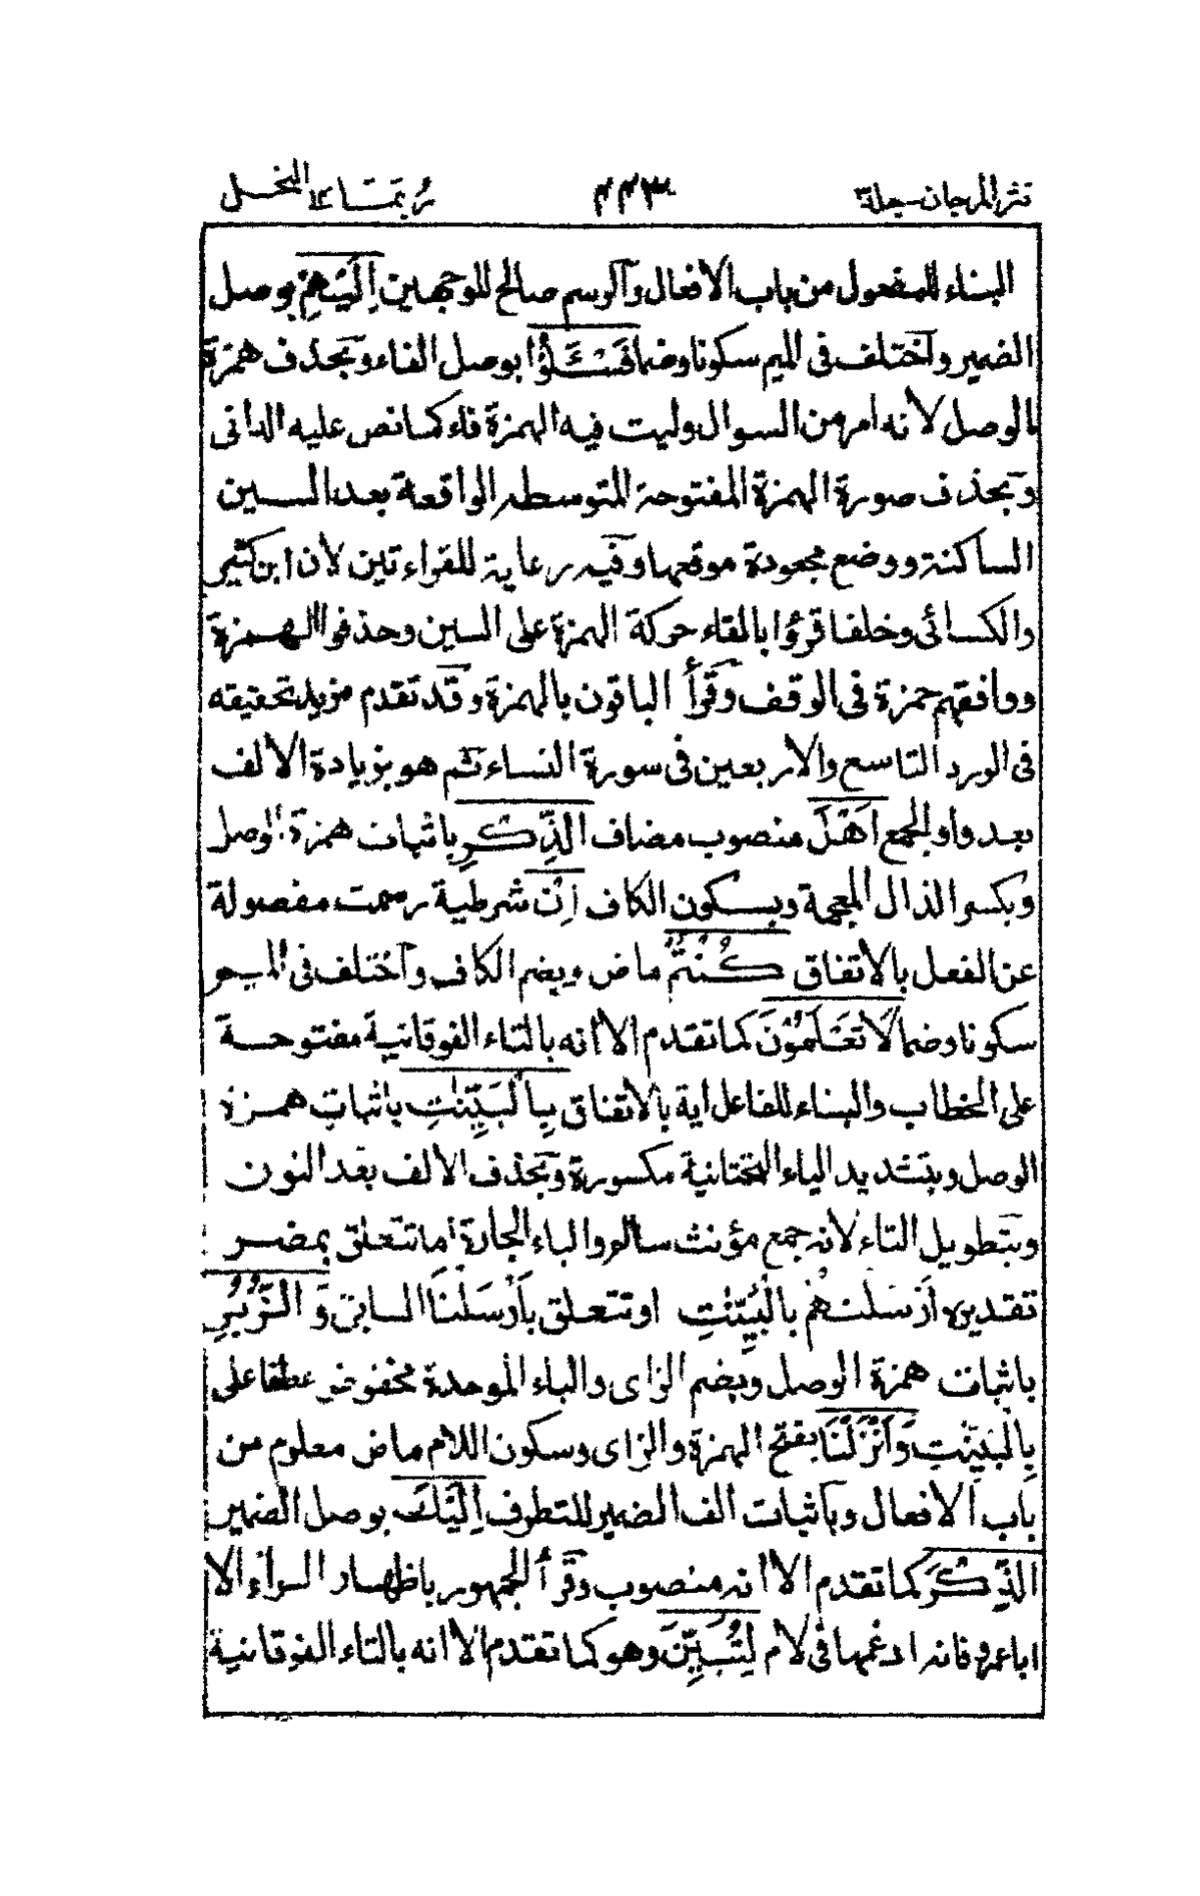 نثر المرجان جلد۳ ۴۴۳ ربما ۱۴ النحل
البناء للمفعول من باب الافعال والرسم صالح للوجهين اِلَيْهِمْ بوصل
الضمير واختلف فى الميم سكونا وضما فَسْـَٔلُوْٓا بوصل الفاء وبحذف همزة
الوصل لانه امر من السوال وليت فيه الهمزة فاء كما نص عليه الدانى
وبحذف صورة الهمزة المفتوحة المتوسطه الواقعة بعد السين
الساكنة ووضع مجعودة موقعها وفيه رعاية للقراءتين لان ابن كثير
والكسائى وخلفا قرؤا بالقاء حركة الهمزة على السين وحذفوا الهمزة
ووافقهم حمزة فى الوقف وقرأ الباقون بالهمزة وقد تقدم مزيد تحقيقه
فى الورد التاسع والاربعين فى سورة النساء ثم هو بزيادة الالف
بعد واو الجمع اَهْلَ منصوب مضاف الذِّكْرِ باثبات همزة الوصل
وبكسر الذال المعجمة وبسكون الكاف اِنْ شرطية رسمت مفصولة
عن الفعل بالاتفاق كُنْتُمْ ماض وبضم الكاف واختلف فى الميم
سكونا وضما لَا تَعْلَمُوْنَ كما تقدم الا انه بالتاء الفوقانية مفتوحة
على الخطاب والبناء للفاعل اية بالاتفاق بِالْبَيِّنٰتِ باثبات همزة
الوصل وبتشديد الياء التحتانية مكسورة وبحذف الالف بعد النون
وبتطويل التاء لانه جمع مؤنث سالم والباء الجارة اما تتعلق بمضمر
تقديره اَرْسَلْنٰهُمْ بالْبَيِّنٰتِ او تتعلق بأَرْسَلْنَا السابق وَ الزُّبُرِ
باثبات همزة الوصل وبضم الزاى والباء الموحدة مخفوض عطفا على
بِالْبَيِّنٰتِ وَاَنْزَلْنَا بفتح الهمزة والزاى وسكون اللام ماض معلوم من
باب الافعال وباثبات الف الضمير للتطرف اِلَيْكَ بوصل الضمير
الذِّكْرَ كما تقدم الا انه منصوب وقرأ الجمهور باظهار الراء الا
اباعمرو فانه ادغمها فى لام لِتُبَيِّنَ وهو كما تقدم الا انه بالتاء الفوقانية